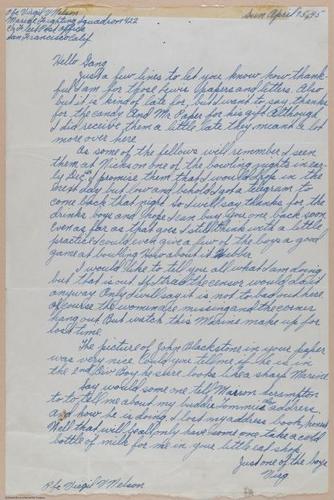 Pfc Virgil V Nelson Sun April 8, 45
Marine Fighting Squadron 422
c/o Fleet Post Office
San Francisco Calif.
Hello Gang
Just a few lines to let you know how thank-
ful I am for those News papers and letters. Also
but it is kind of late for, but I want to say thanks
for the candy. And Mr. Paper for his gift although
I did receive them a little late they meant a lot
more over here.
As some of the fellows will remember I seen
them at Nicks on one of the bowling nights in ear-
ly Dec. I promise them that I would drop in the
next day but low and behold I got a telegram to
come back that night so I will say thanks for the
drinks boys and I hope I can buy you one back soon
even as far as that goes I still think with a little
practice I could even give a few of the boys a good
game at bowling. How about it Hubba.
I would like to tell you all what I am doing
but that is out of the the censor would
anyway. Only I will say it is not to bad out here
of course the women are missing and the corner
hang out. But watch this Marine make up for
lost time.
The picture of John Blackstone in your paper
was very nice. Could you tell me if he is in
the 2nd Div Boy he sure looks like a sharp Marine
Say would some one tell Marion
to to tell me about my buddie Tommies address
and how he is doing. I lost my address book,
Well that will be all only have some one take a cold
bottle of milk for me in your little eat shop.
Just one of the boys
Virg
Pfc Virgil V Nelson